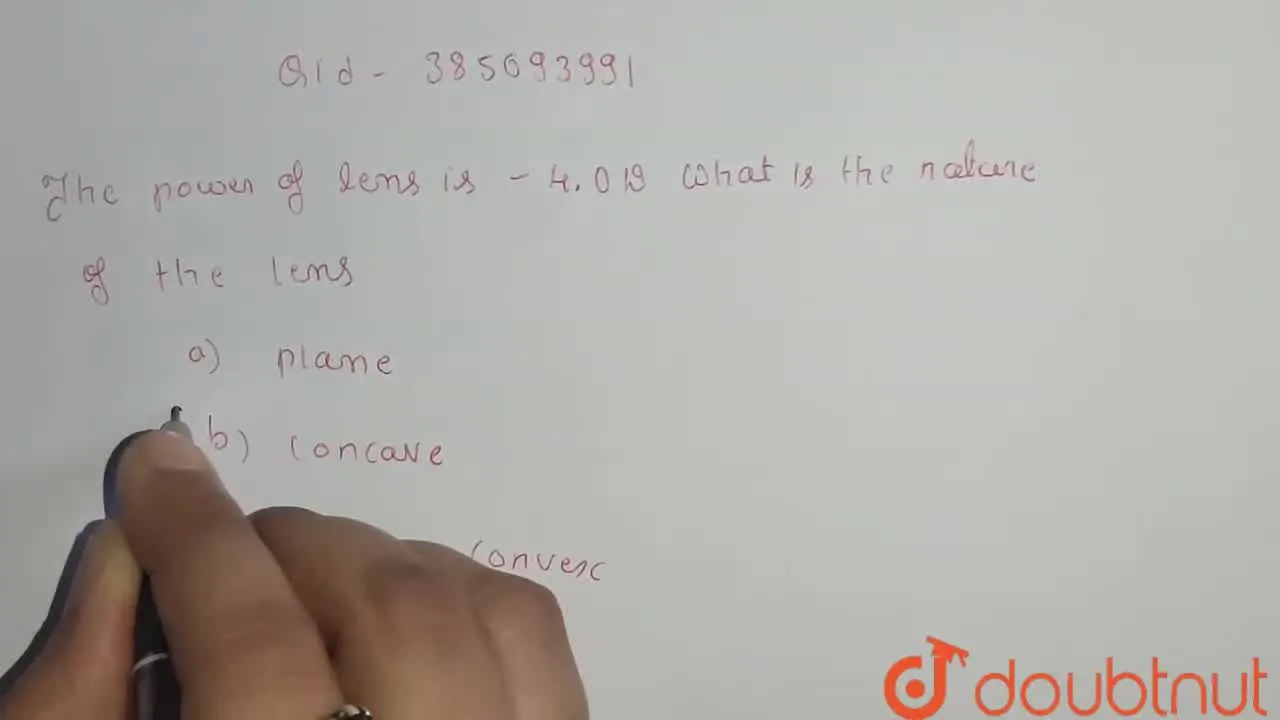 Qid - 385093991
The power of lens is - 4.0D What is the nature
of the lens
a) plane
b) concave
convex
doubtnut